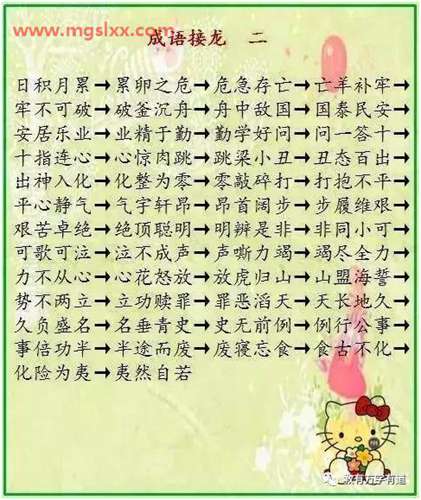 www.mgslxx.com
成语接龙 二
日积月累→累卵之危→危急存亡→亡羊补牢→
牢不可破→破釜沉舟→舟中敌国→国泰民安→
安居乐业→业精于勤→勤学好问→问一答十→
十指连心→心惊肉跳→跳梁小丑→丑态百出→
出神入化→化整为零→零敲碎打→打抱不平→
平心静气→气宇轩昂→昂首阔步→步履维艰→
艰苦卓绝→绝顶聪明→明辨是非→非同小可→
可歌可泣→泣不成声→声嘶力竭→竭尽全力→
力不从心→心花怒放→放虎归山→山盟海誓→
势不两立→立功赎罪→罪恶滔天→天长地久→
久负盛名→名垂青史→史无前例→例行公事→
事倍功半→半途而废→废寝忘食→食古不化→
化险为夷→夷然自若
教有方学有道